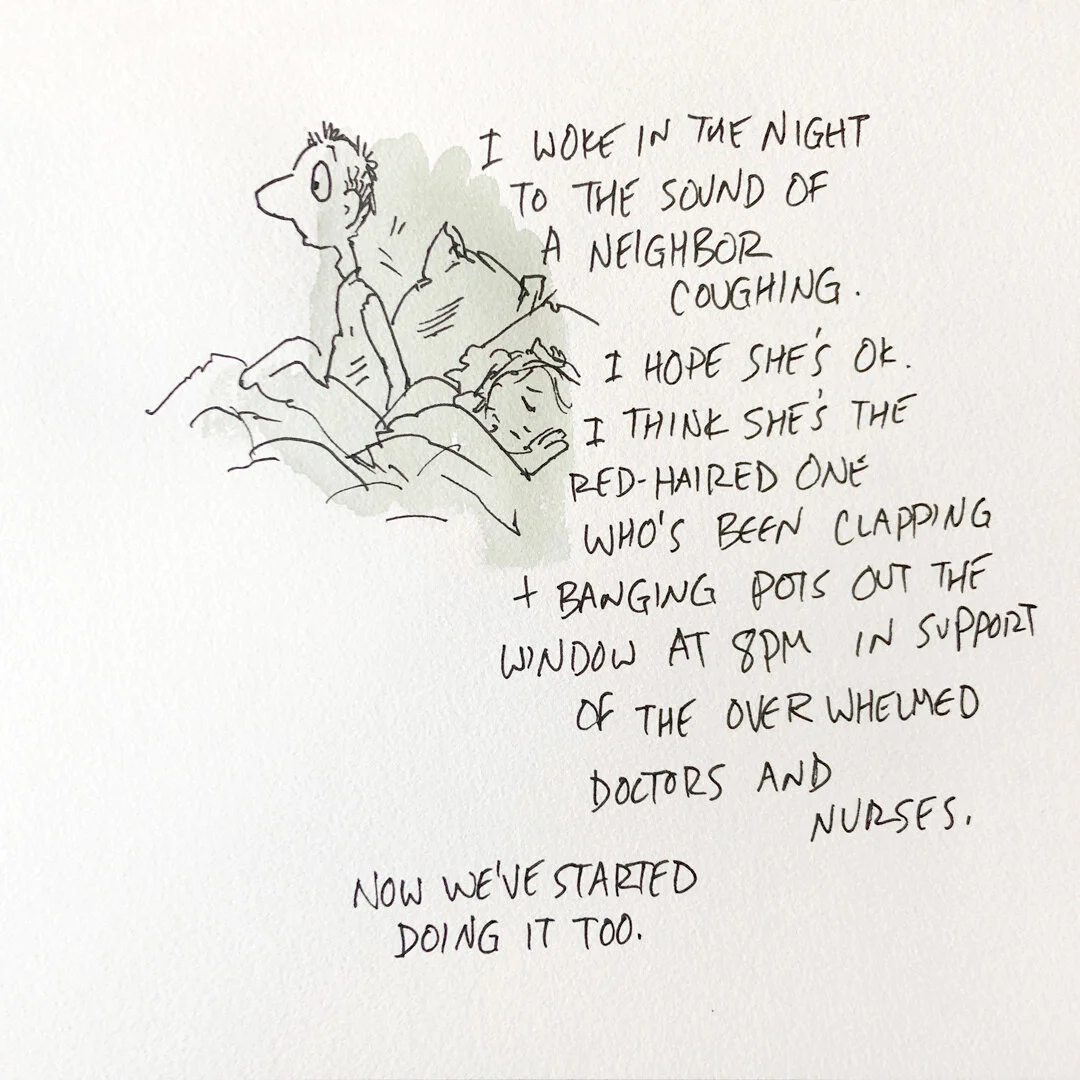 I WOKE IN THE NIGHT
TO THE SOUND OF
A NEIGHBOR
COUGHING.
I HOPE SHE'S OK.
I THINK SHE'S THE
RED-HAIRED ONE
WHO'S BEEN CLAPPING
+ BANGING POTS OUT THE
WINDOW AT 8PM IN SUPPORT
OF THE OVERWHELMED
DOCTORS AND
NURSES.
NOW WE'VE STARTED
DOING IT TOO.